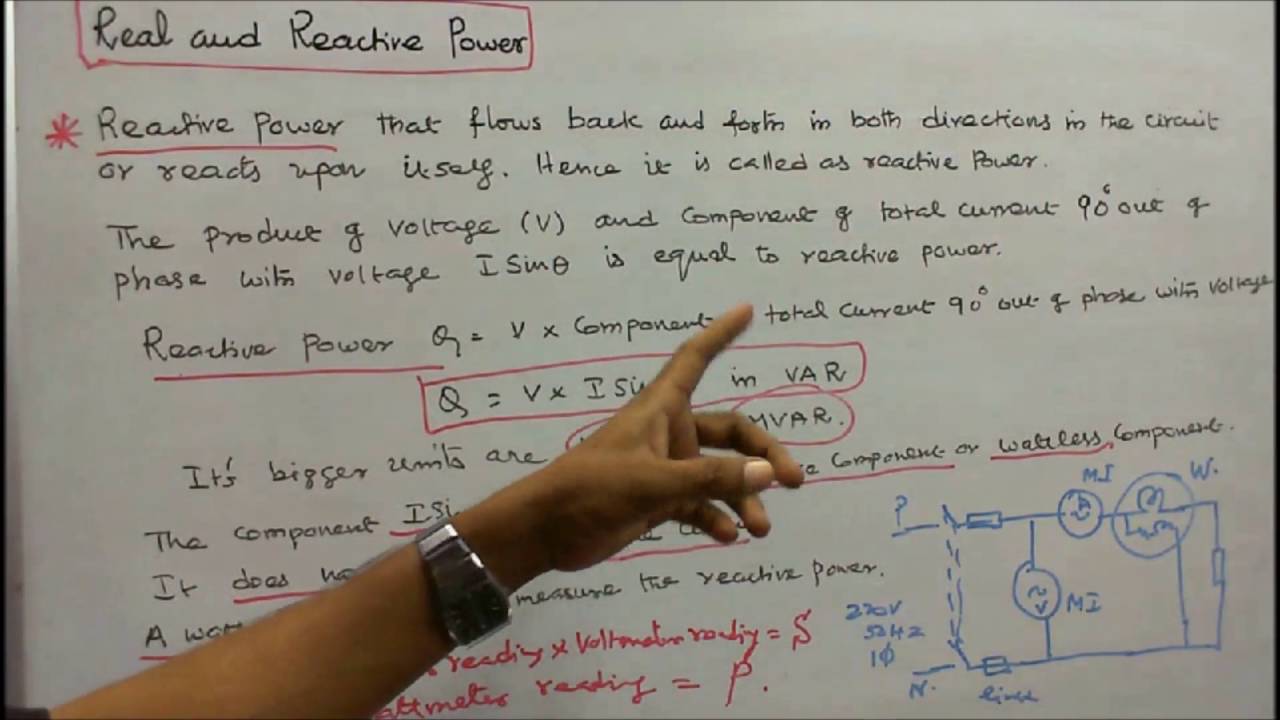 Real and Reactive Power
* Reactive Power that flows back and forth in both directions in the circuit
or reacts upon itself. Hence it is called as reactive Power.
The product of voltage (V) and component of total current 90° out of
phase with voltage I Sinθ is equal to reactive power.
Reactive power Q = V × Component total current 90° out of phase with voltage
Q = V × I Sin in VAR
It's bigger units are MVAR.
component or wattless component.
The component I Si
It does
measure the reactive power.
A
reading × Voltmeter reading = S
reading = P.
MI W.
P
A
V MI
220V
50HZ
1ϕ
N.